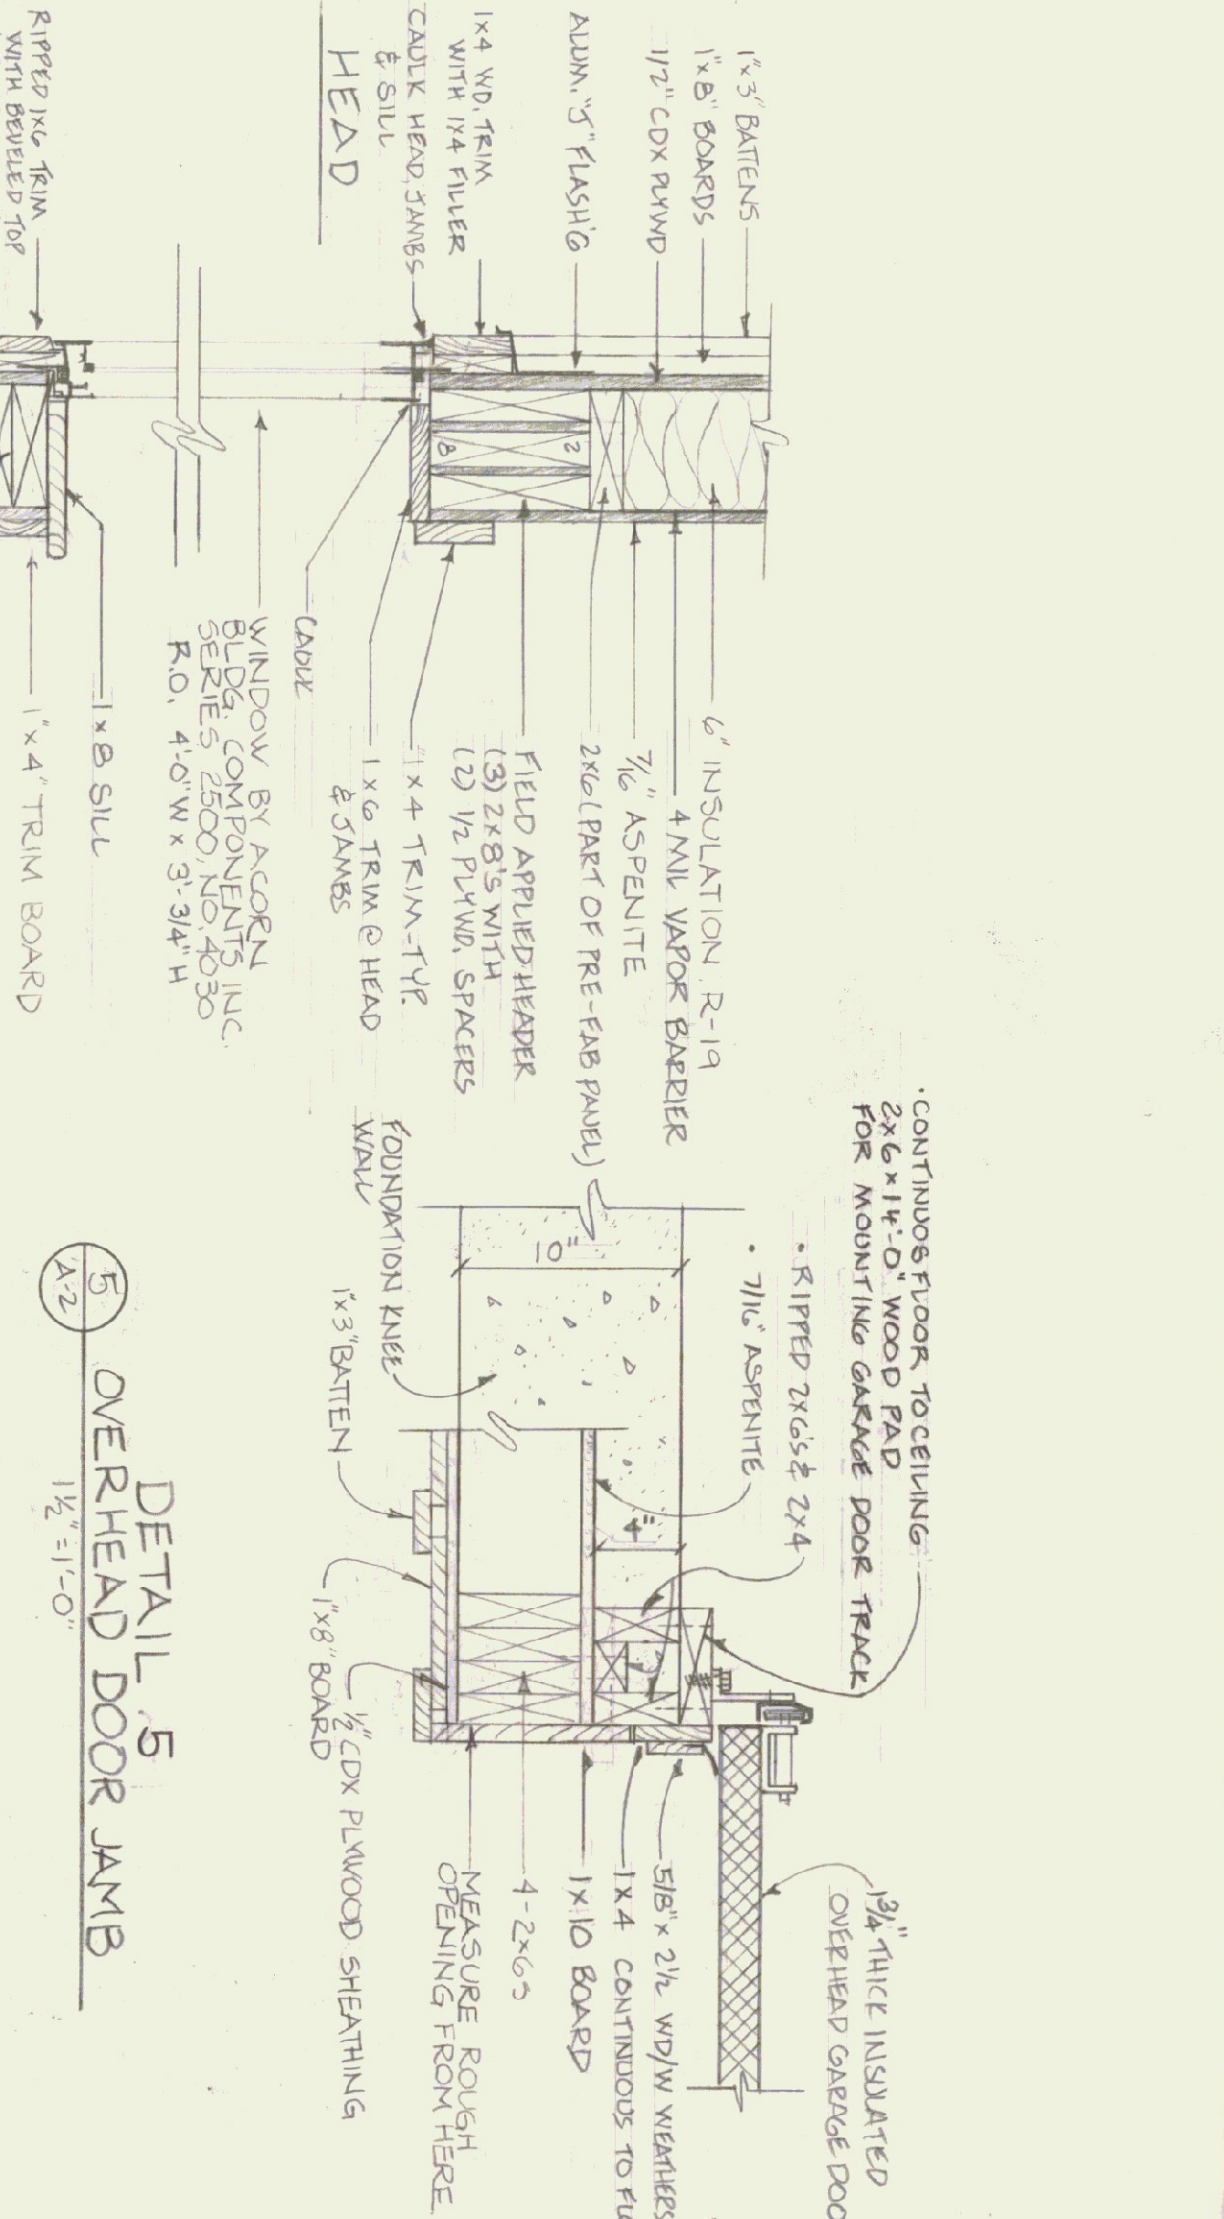 1"x3" BATTENS
1"x8" BOARDS
1/2" CDX PLYWD
ALUM. "J" FLASH'G
1x4 WD. TRIM
WITH 1x4 FILLER
CAULK HEAD, JAMBS
& SILL
HEAD
RIPPED 1x6 TRIM
WITH BEVELED TOP
8
2
6" INSULATION R-19
4 MIL VAPOR BARRIER
7/16" ASPENITE
2x6 (PART OF PRE-FAB PANEL)
FIELD APPLIED HEADER
(3) 2x8'S WITH
(2) 1/2 PLYWD. SPACERS
1x4 TRIM-TYP.
1x6 TRIM @ HEAD
& JAMBS
CAULK
WINDOW BY ACORN
BLDG. COMPONENTS INC.
SERIES 2500, NO. 4030
R.O. 4'-0" W x 3'-3/4" H
1x8 SILL
1"x4" TRIM BOARD
•CONTINUOS FLOOR TO CEILING
2x6x14'-0" WOOD PAD
FOR MOUNTING GARAGE DOOR TRACK
• RIPPED 2x6'S & 2x4
• 7/16" ASPENITE
10"
4"
FOUNDATION KNEE
WALL
1"x3" BATTEN
1"x8" BOARD
1/2" CDX PLYWOOD SHEATHING
1 3/4" THICK INSULATED
OVERHEAD GARAGE DOO
5/8" x 2 1/2 WD/W WEATHERS
1x4 CONTINUOUS TO FL
1x10 BOARD
4-2x6s
MEASURE ROUGH
OPENING FROM HERE
DETAIL 5
5
A-2
OVERHEAD DOOR JAMB
1 1/2" = 1'-0"